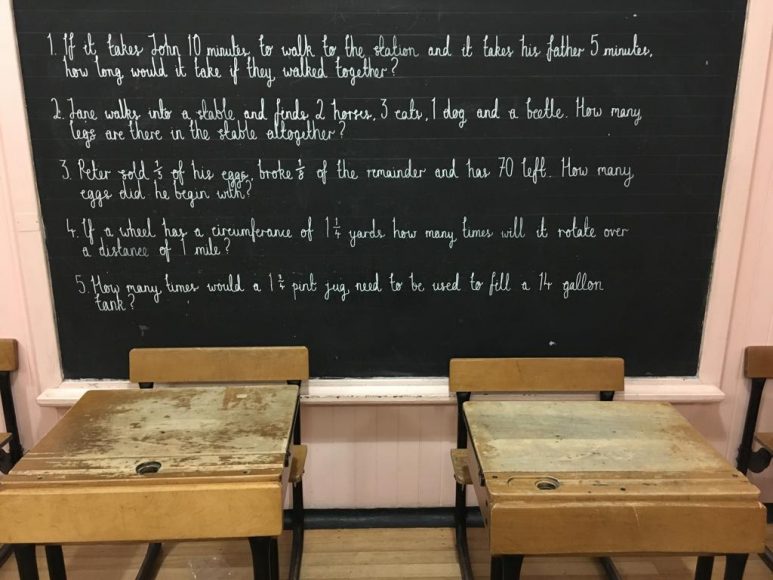 1. If it takes John 10 minutes to walk to the station and it takes his father 5 minutes,
how long would it take if they walked together?
2. Jane walks into a stable and finds 2 horses, 3 cats, 1 dog and a beetle. How many
legs are there in the stable altogether?
3. Peter sold ⅓ of his eggs, broke ⅛ of the remainder and has 70 left. How many
eggs did he begin with?
4. If a wheel has a circumferance of 1¼ yards how many times will it rotate over
a distance of 1 mile?
5. How many times would a pint jug need to be used to fill a 14 gallon
tank?